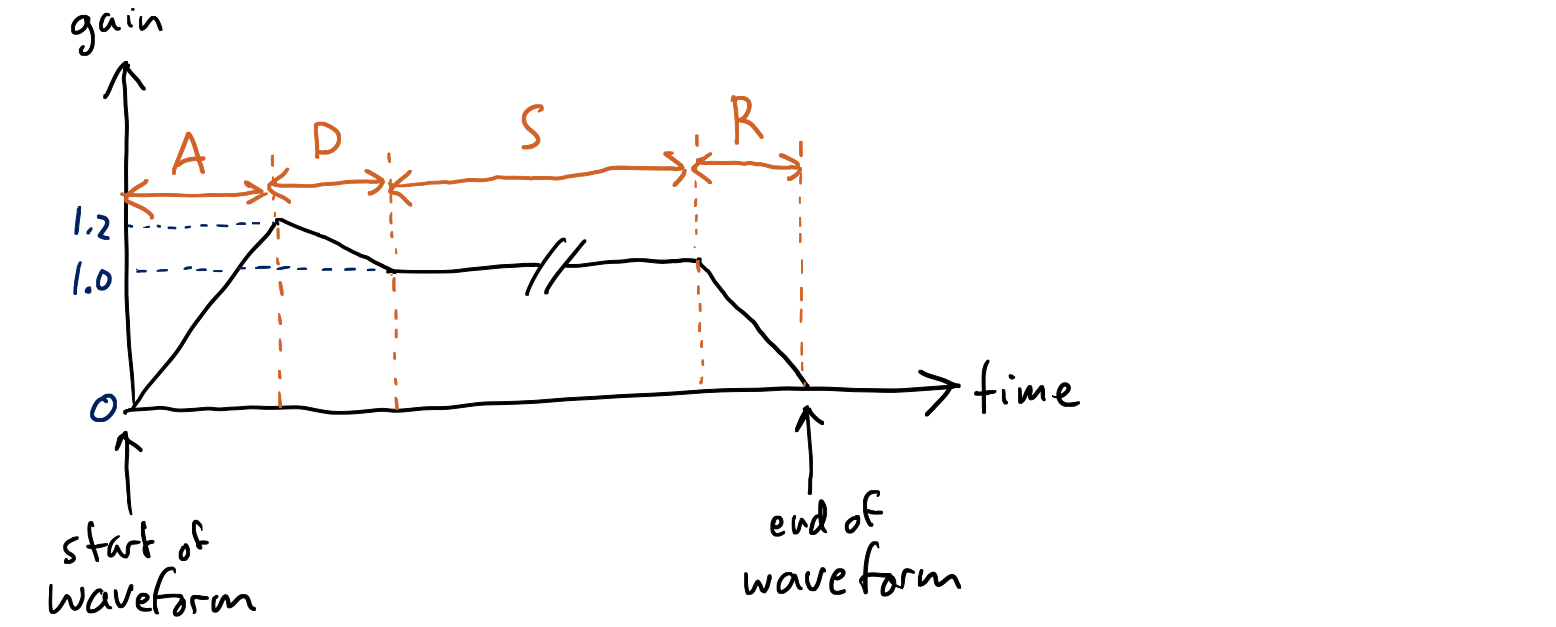 gain
A
D
S
R
1.2
1.0
0
time
start of
waveform
end of
waveform